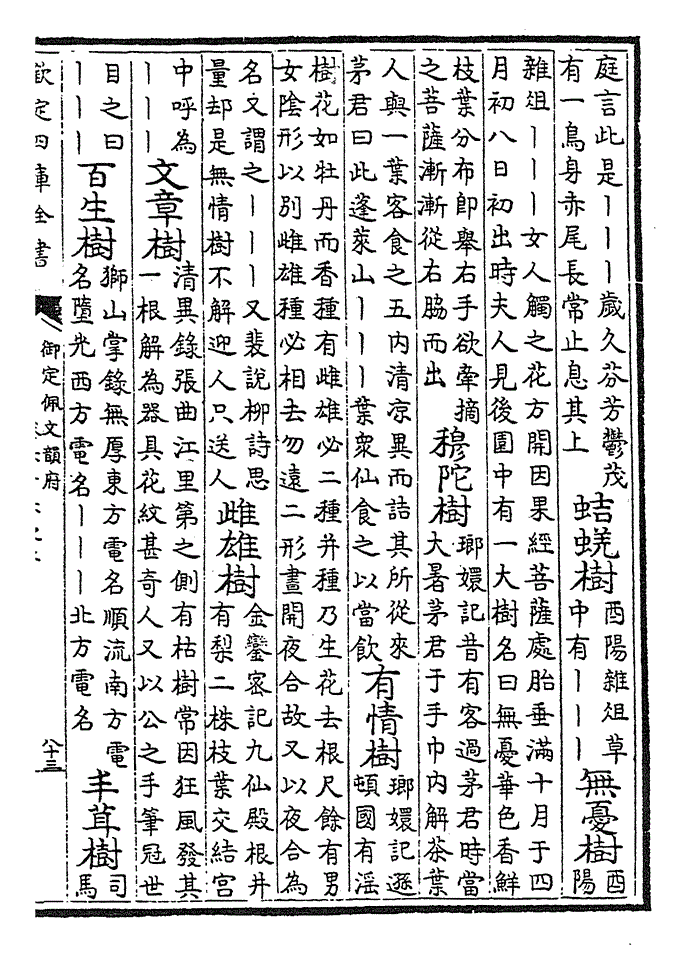 庭言此是｜｜｜歲久芬芳鬱茂
有一鳥身赤尾長常止息其上
蛣蜣樹
酉陽雜俎草
中有｜｜｜
無憂樹
酉
陽
雜俎｜｜｜女人觸之花方開因果經菩薩處胎垂滿十月于四
月初八日初出時夫人見後園中有一大樹名曰無憂華色香鮮
枝葉分布卽舉右手欲牽摘
之菩薩漸漸從右脇而出
穆陀樹
瑯嬛記昔有客過茅君時當
大暑茅君于手巾内解茶葉
人與一葉客食之五内清凉異而詰其所從來
茅君曰此蓬萊山｜｜｜葉衆仙食之以當飲
有情樹
瑯嬛記遜
頓國有滛
樹花如牡丹而香種有雌雄必二種并種乃生花去根尺餘有男
女陰形以别雌雄種必相去勿遠二形晝開夜合故又以夜合為
名又謂之｜｜｜又裴說柳詩思
量却是無情樹不解迎人只送人
雌雄樹
金鑾密記九仙殿根井
有梨二株枝葉交結宫
中呼為
｜｜｜
文章樹
清異錄張曲江里第之側有枯樹常因狂風發其
一根解為器具花紋甚奇人又以公之手筆冠世
目之曰
｜｜｜
百生樹
獅山掌錄無厚東方電名順流南方電
名墮光西方電名｜｜｜北方電名
丰茸樹
司
馬
欽定四庫全書
御定佩文韻府
八十三